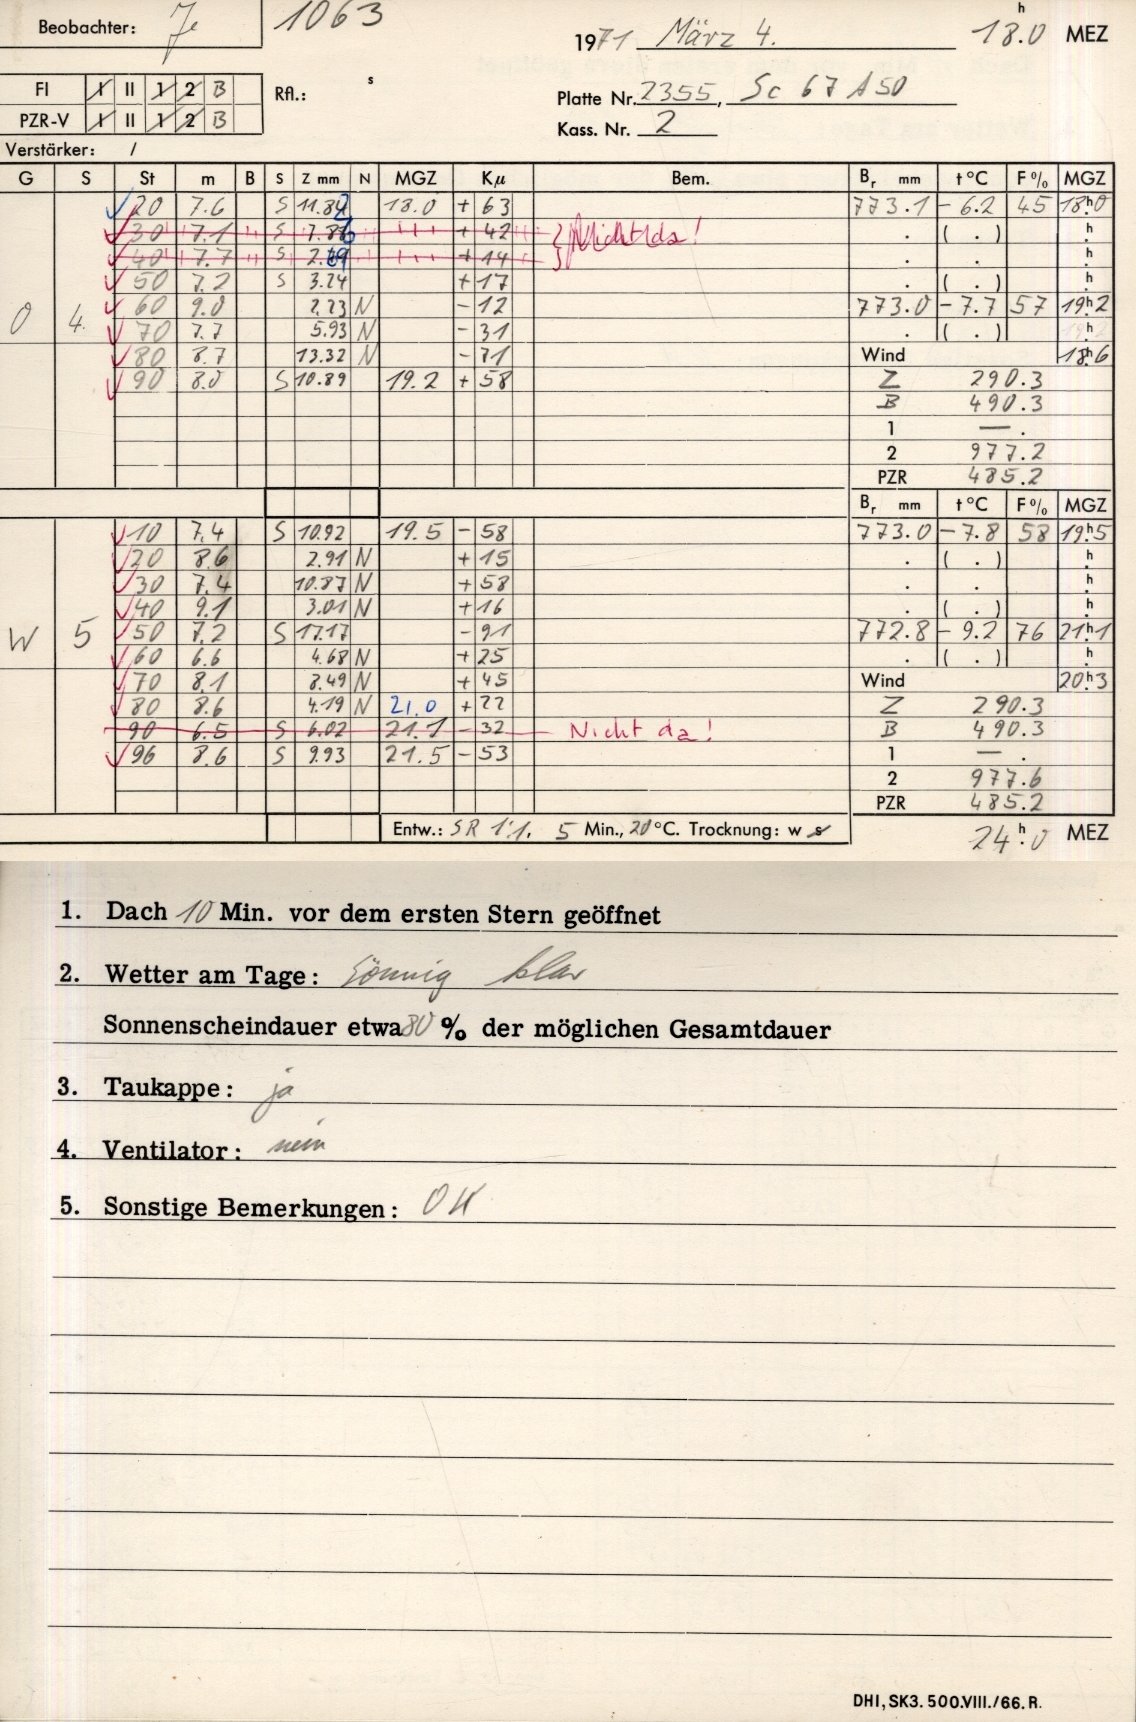 Beobachter: Je 1063
1971 März 4. 18.0 h MEZ
FI I II 1 2 B Rfl.: s
PZR-V I II 1 2 B
Platte Nr. 2355, Sc 67 A 50
Kass. Nr. 2
Verstärker: /
G S St m B S Z mm N MGZ Kμ Bem. Br mm t °C F % MGZ
20 7.6 S 11.84 18.0 + 63 773.1 - 6.2 45 18h0
30 7.1 S 7.86 + 42 Nicht da! . ( . ) h
40 7.7 S 2.69 + 14 . . h
50 7.2 S 3.24 + 17 . ( . ) h
O 4. 60 9.0 2.23 N - 12 773.0 - 7.7 57 19h2
70 7.7 5.93 N - 31 . ( . ) h
80 8.7 13.32 N - 71 Wind 18h6
90 8.0 S 10.89 19.2 + 58 Z 290.3
B 490.3
1 — .
2 977.2
PZR 485.2
Br mm t °C F % MGZ
10 7.4 S 10.92 19.5 - 58 773.0 - 7.8 58 19h5
20 8.6 2.91 N + 15 . ( . ) h
30 7.4 10.87 N + 58 . . h
40 9.1 3.01 N + 16 . ( . ) h
W 5 50 7.2 S 17.17 - 91 772.8 - 9.2 76 21h1
60 6.6 4.68 N + 25 . ( . ) h
70 8.1 8.49 N + 45 Wind 20h3
80 8.6 4.19 N 21.0 + 22 Z 290.3
90 6.5 S 6.02 21.1 - 32 Nicht da! B 490.3
96 8.6 S 9.93 21.5 - 53 1 — .
2 977.6
PZR 485.2
Entw.: SR 1:1, 5 Min., 20 °C. Trocknung: w s 24.0 h MEZ
1. Dach 10 Min. vor dem ersten Stern geöffnet
2. Wetter am Tage: sonnig klar
Sonnenscheindauer etwa 80 % der möglichen Gesamtdauer
3. Taukappe: ja
4. Ventilator: nein
5. Sonstige Bemerkungen: OW
DHI, SK3. 500.VIII./66. R.